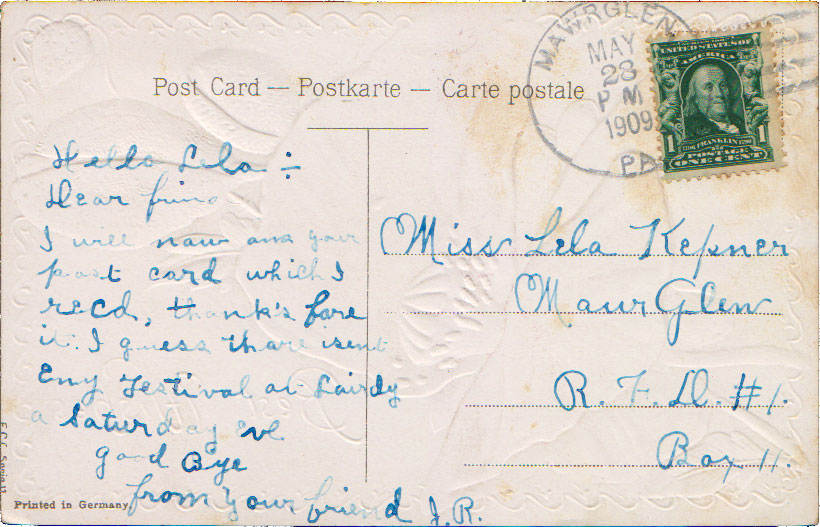 Post Card — Postkarte — Carte postale
MAWRGLEN
MAY
28
P M
1909
PA
UNITED STATES OF
AMERICA
FRANKLIN
1 POSTAGE 1
ONE CENT
Hello Lela ÷
Dear frind
I will now ans your
post card which I
recd, thank's fore
it. I guess thare isent
Eny Festival at Lairdy
a Saturday eve
good Bye
from your friend J.R.
Miss Lela Kepner
Mawr Glen
R. F. D. #1.
Box 11.
Printed in Germany